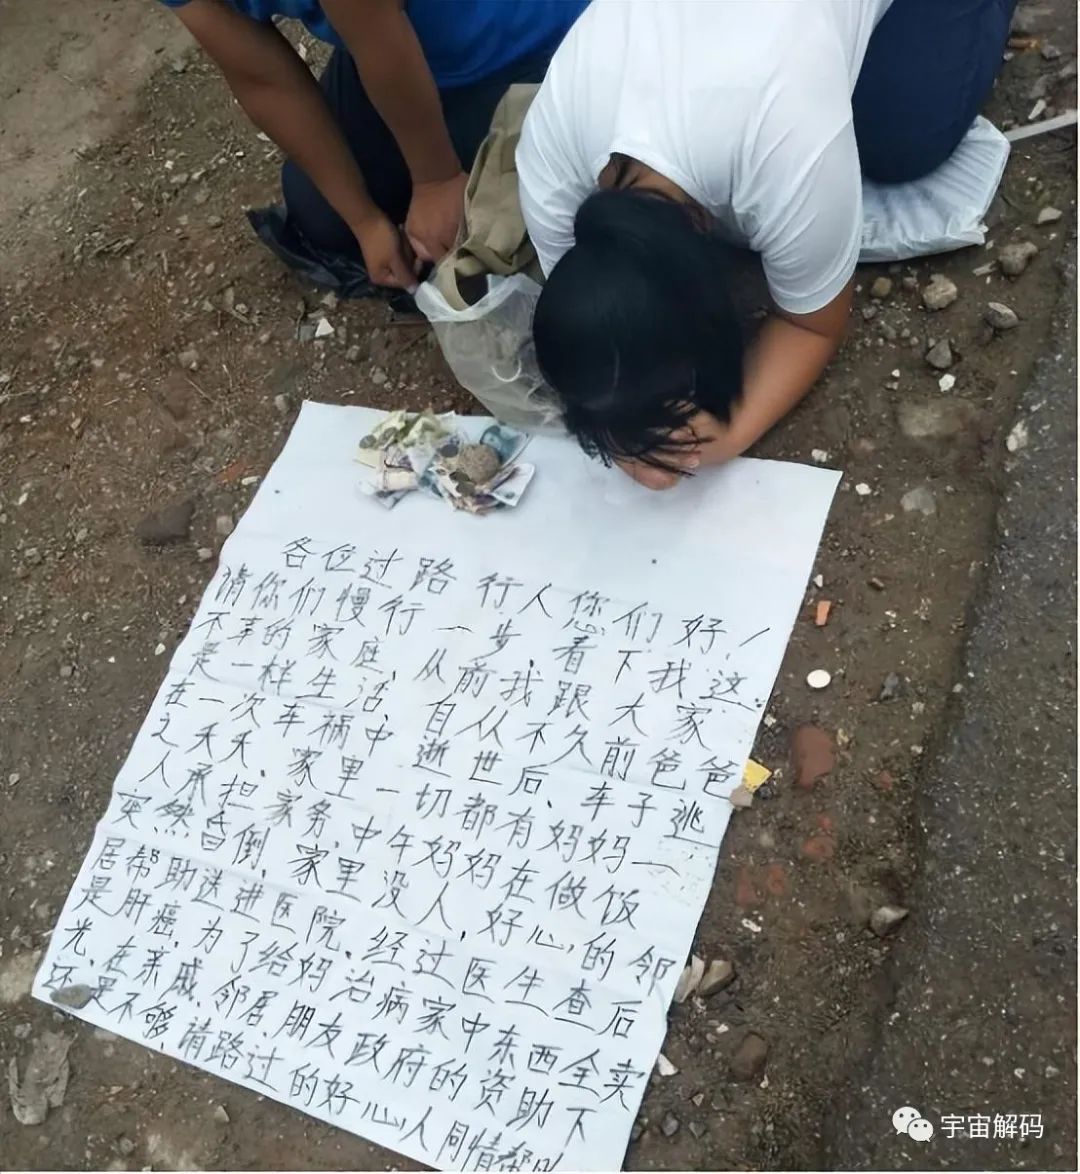 各位过路行人您们好！
请你们慢行一步,看下我这
不幸的家庭,从前我跟大家
是一样生活,自从不久前爸爸
在一次车祸中逝世后、车子逃
之夭夭、家里一切都有妈妈一
人承担家务,中午妈妈在做饭
突然昏倒,家里没人,好心的邻
居帮助送进医院,经过医生查后
是肝癌,为了给妈治病家中东西全卖
光,在亲戚、邻居朋友政府的资助下
还是不够,请路过的好心人同情帮
宇宙解码